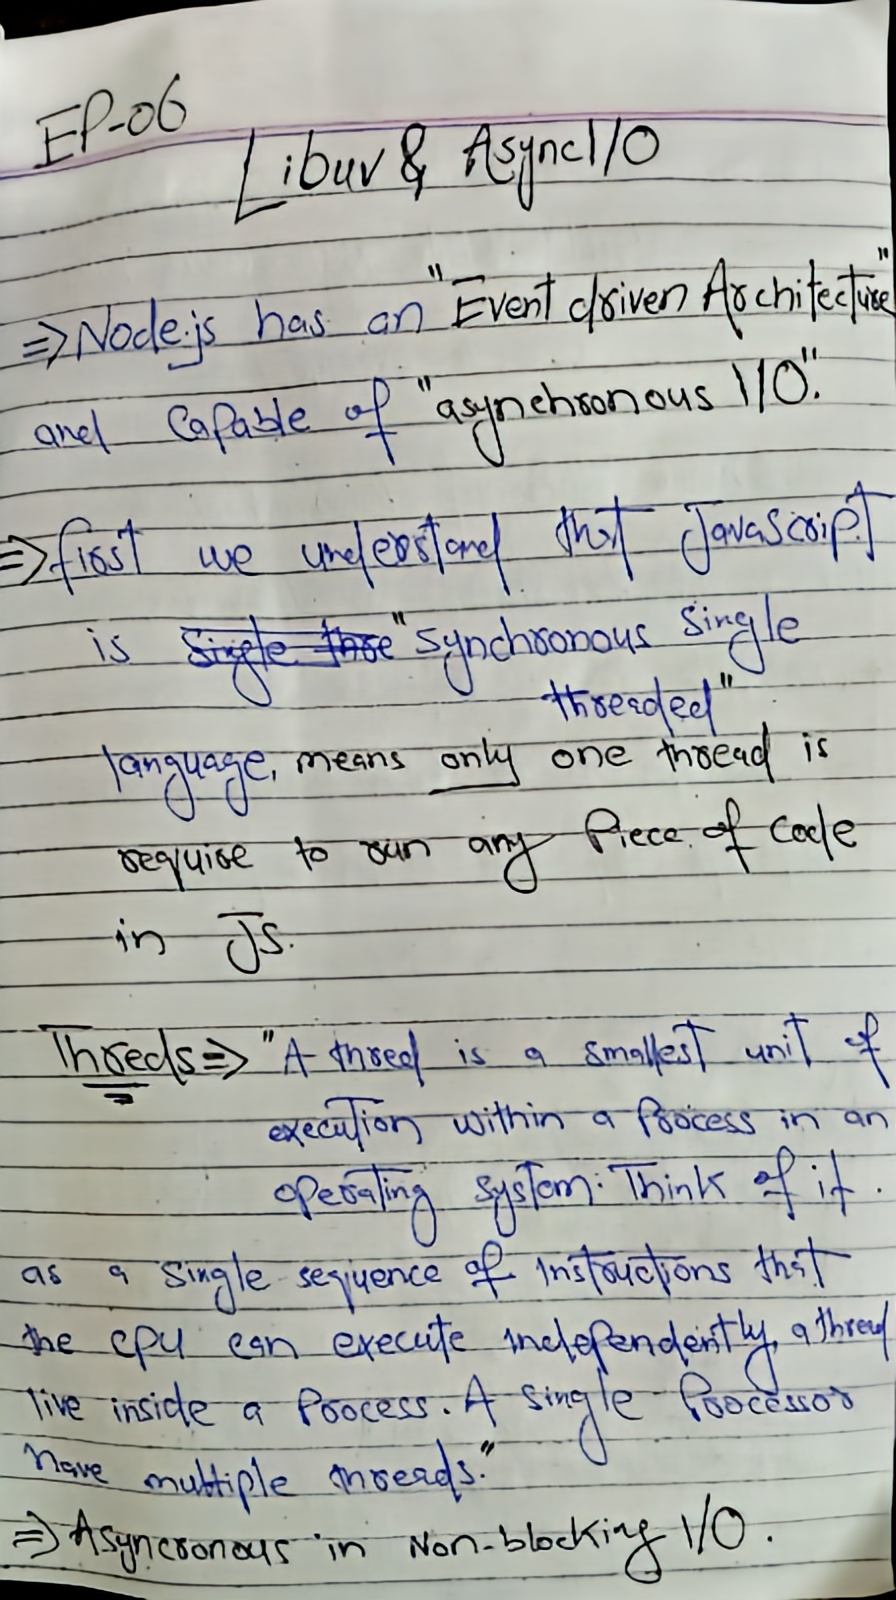 EP-06
Libuv & Async I/O
⇒ Node.js has an "Event driven Architecture"
and Capable of "asynchronous I/O".
⇒ first we understand that JavaScript
is Single thre "Synchronous Single
threaded"
language, means only one thread is
require to run any Piece of Code
in JS.
Threds ⇒ "A thred is a smallest unit of
execution within a Process in an
operating system. Think of it.
as a Single sequence of Instructions that
the CPU can execute independently, a thred
live inside a Process. A Single Processor
have multiple threads."
⇒ Asyncronous in Non-blocking I/O.